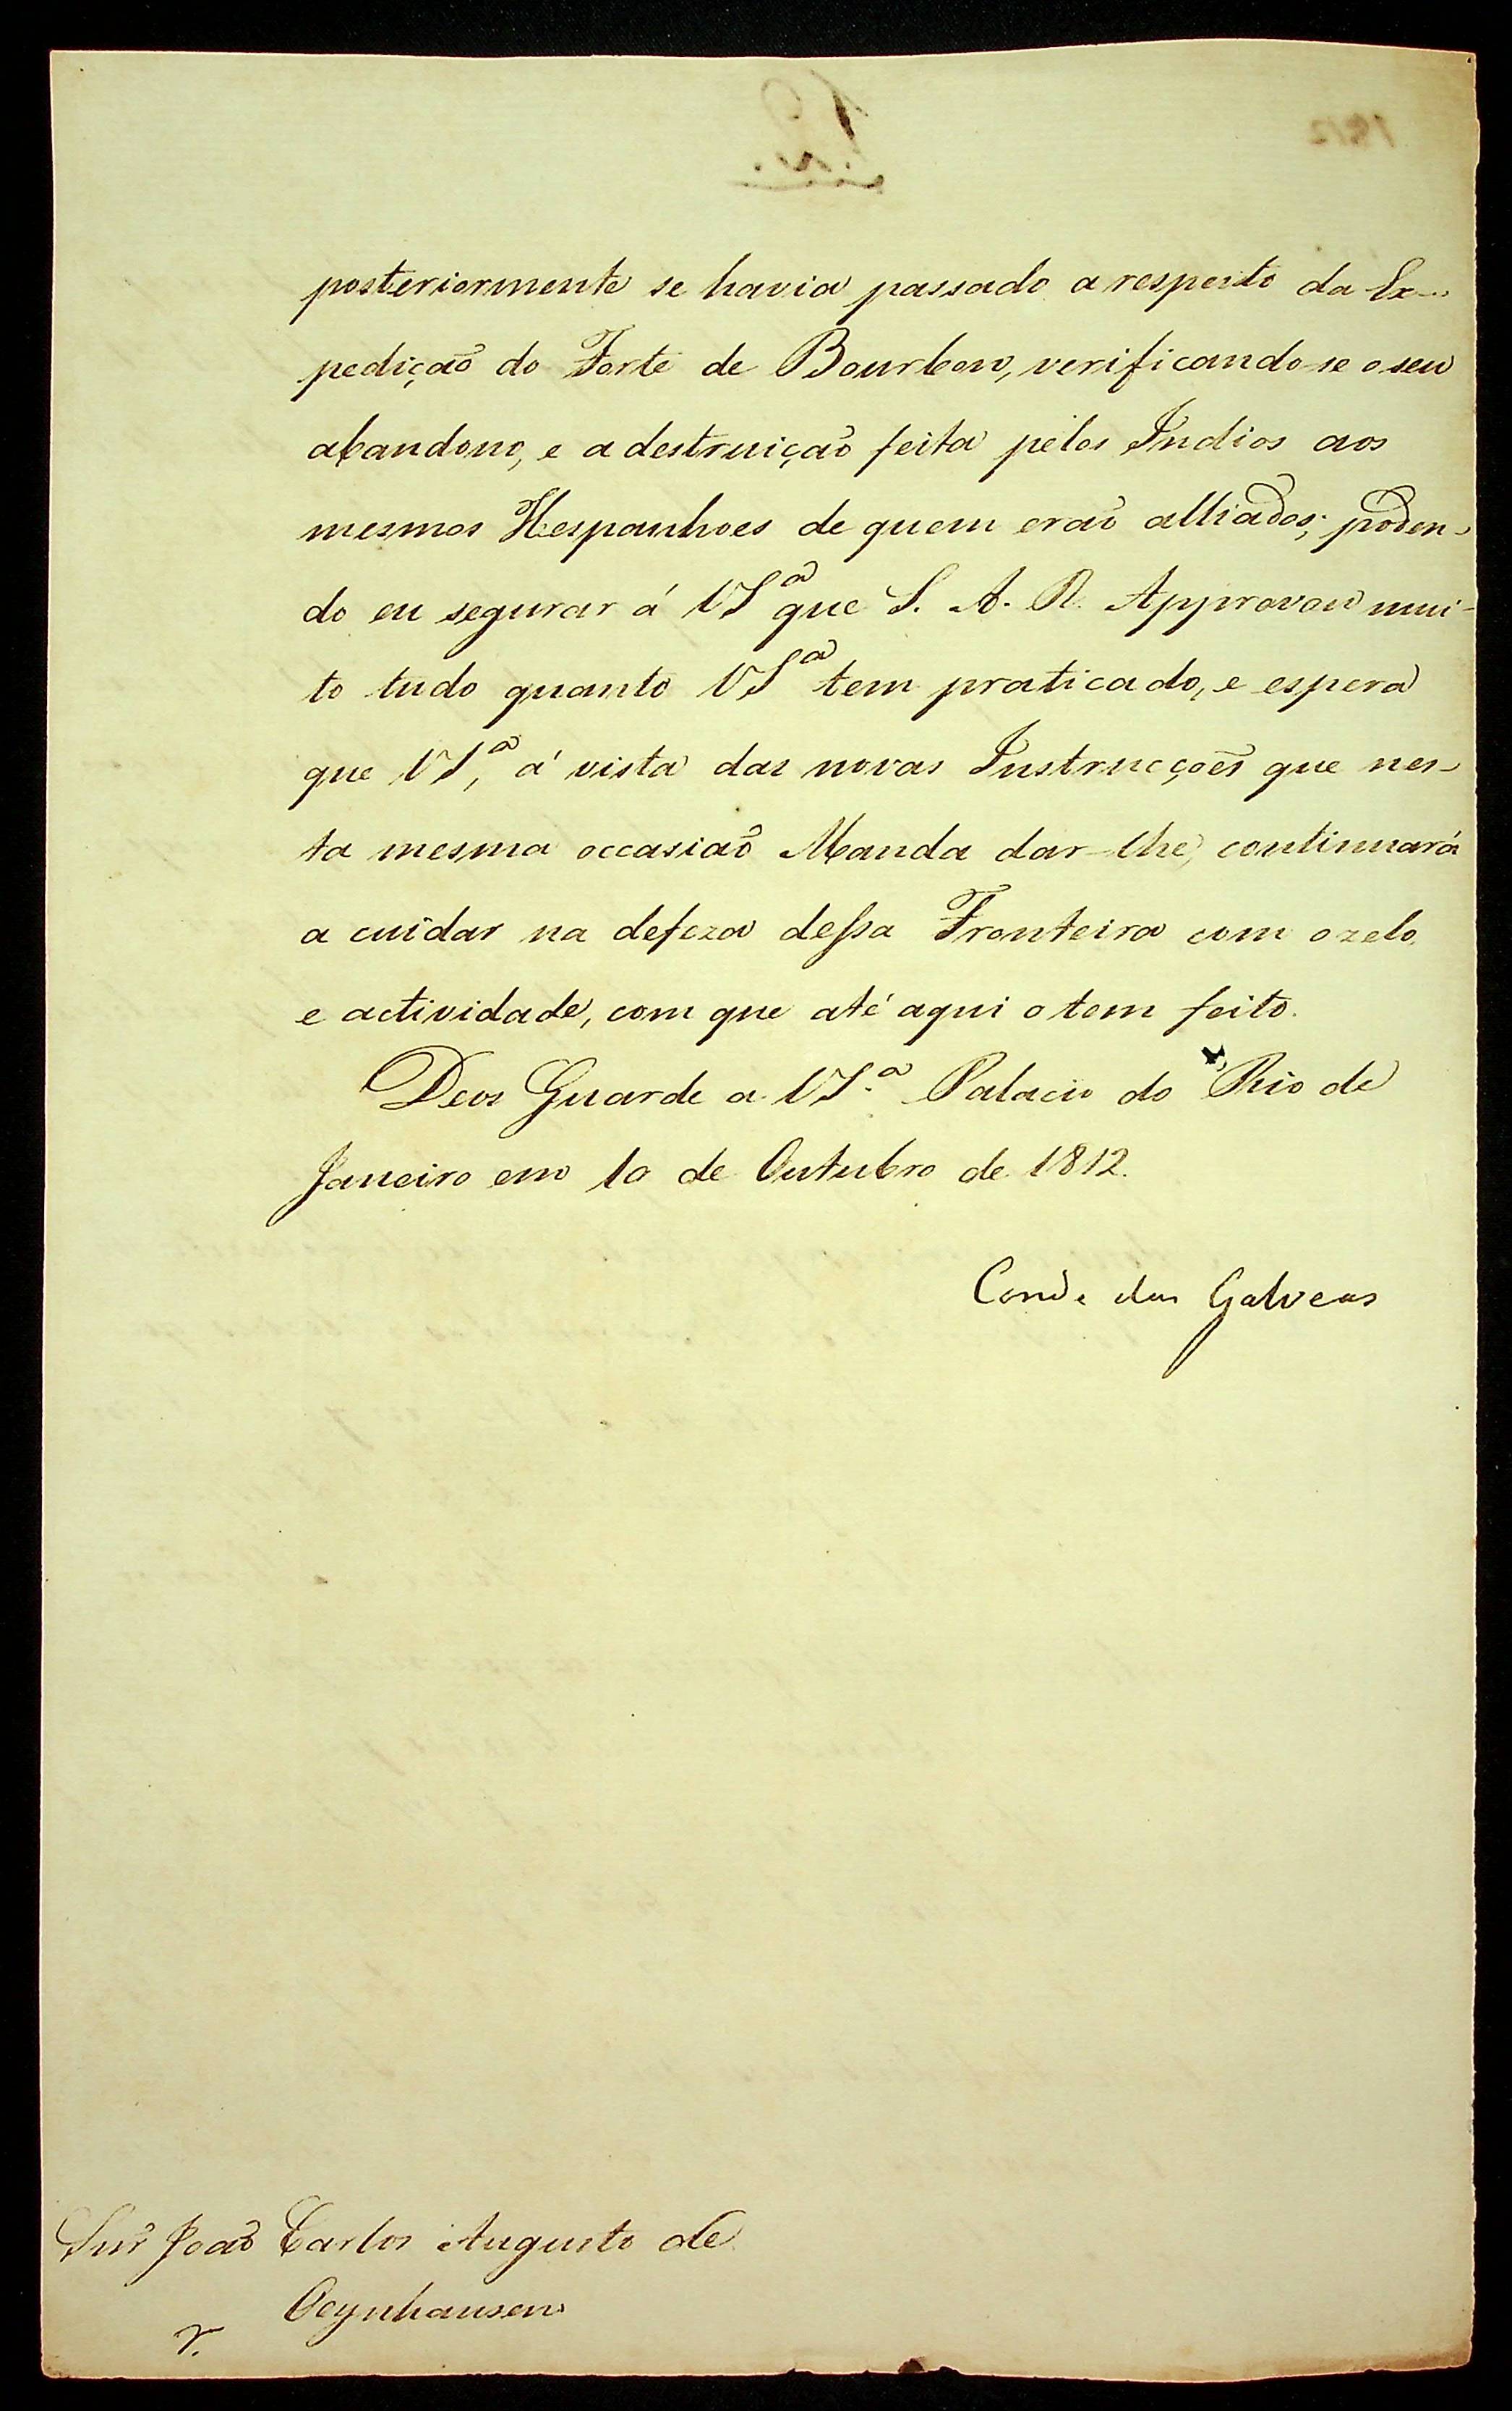 posteriormente se havia passado a respeito da Ex-
pedição do Forte de Bourbon, verificando-se o seu
abandono, e a destruição feita pelos Indios aos
mesmos Hespanhoes de quem erão alliados; poden-
do eu segurar á VSª que S. A. R. Approvou mui-
to tudo quanto VSª tem praticado, e espera
que VSª, á vista das novas Instrucções que nes-
ta mesma occasião Manda dar-lhe, continuará
a cuidar na defeza dessa Fronteira com o zelo
e actividade, com que até aqui o tem feito.
Deos Guarde a VS.ª Palacio do Rio de
Janeiro em 10 de Outubro de 1812.
Conde das Galveas
Snr João Carlos Augusto de
Oeynhausen